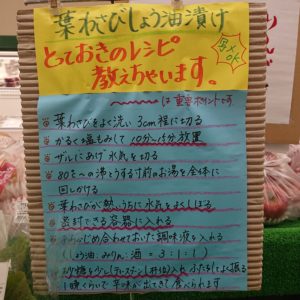 葉わさびしょう油漬け
とっておきのレシピ
教えちゃいます。
写メOK
は重要ポイントです
葉わさびをよく洗い 3cm程に切る
かるく塩もみして 10分~15分放置
ザルにあげ水気を切る
80℃~の沸とうする寸前のお湯を全体に
回しかける
葉わさびが熱いうちに水気をよくしぼる
密封できる容器に入れる
あらかじめ合わせておいた調味液を入れる
(しょう油:みりん:酒=3:1:1)
砂糖を少し(ティースプーン1杯位)入れ ふたをしてよく振る
1晩くらいで辛味が出てきて食べられます